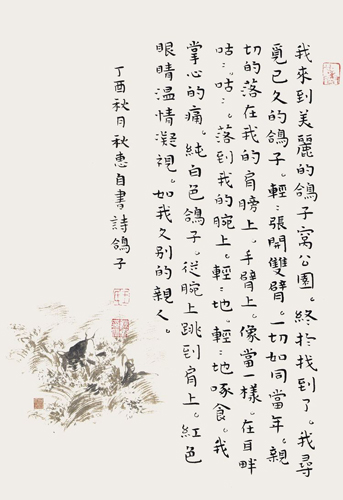 我來到美麗的鴿子窩公園。終於找到了。我尋
覓已久的鴿子。輕：張開雙臂。一切如同當年。親
切的落在我的肩膀上。手臂上。像當一樣。在耳畔
咕：。咕：。落到我的腕上。輕：地。輕：地啄食。我
掌心的痛。純白色鴿子。從腕上跳到肩上。紅色
眼睛溫情凝視。如我久別的親人。
丁酉秋月秋惠自書詩鴿子